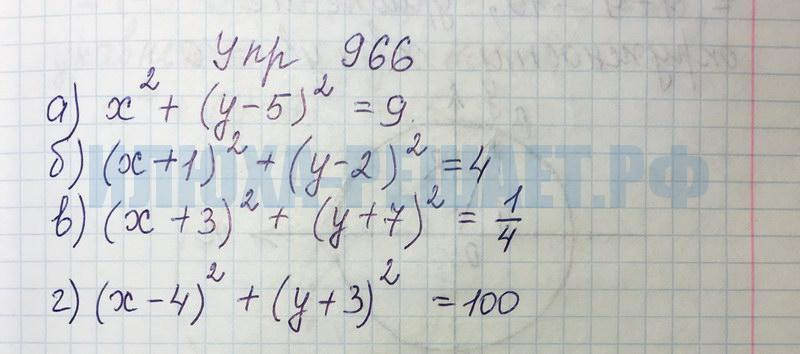 Упр 966
а) x² + (y-5)² = 9.
б) (x+1)² + (y-2)² = 4
в) (x+3)² + (y+7)² = 1/4
г) (x-4)² + (y+3)² = 100
ИЛЮХА-РЕШАЕТ.РФ